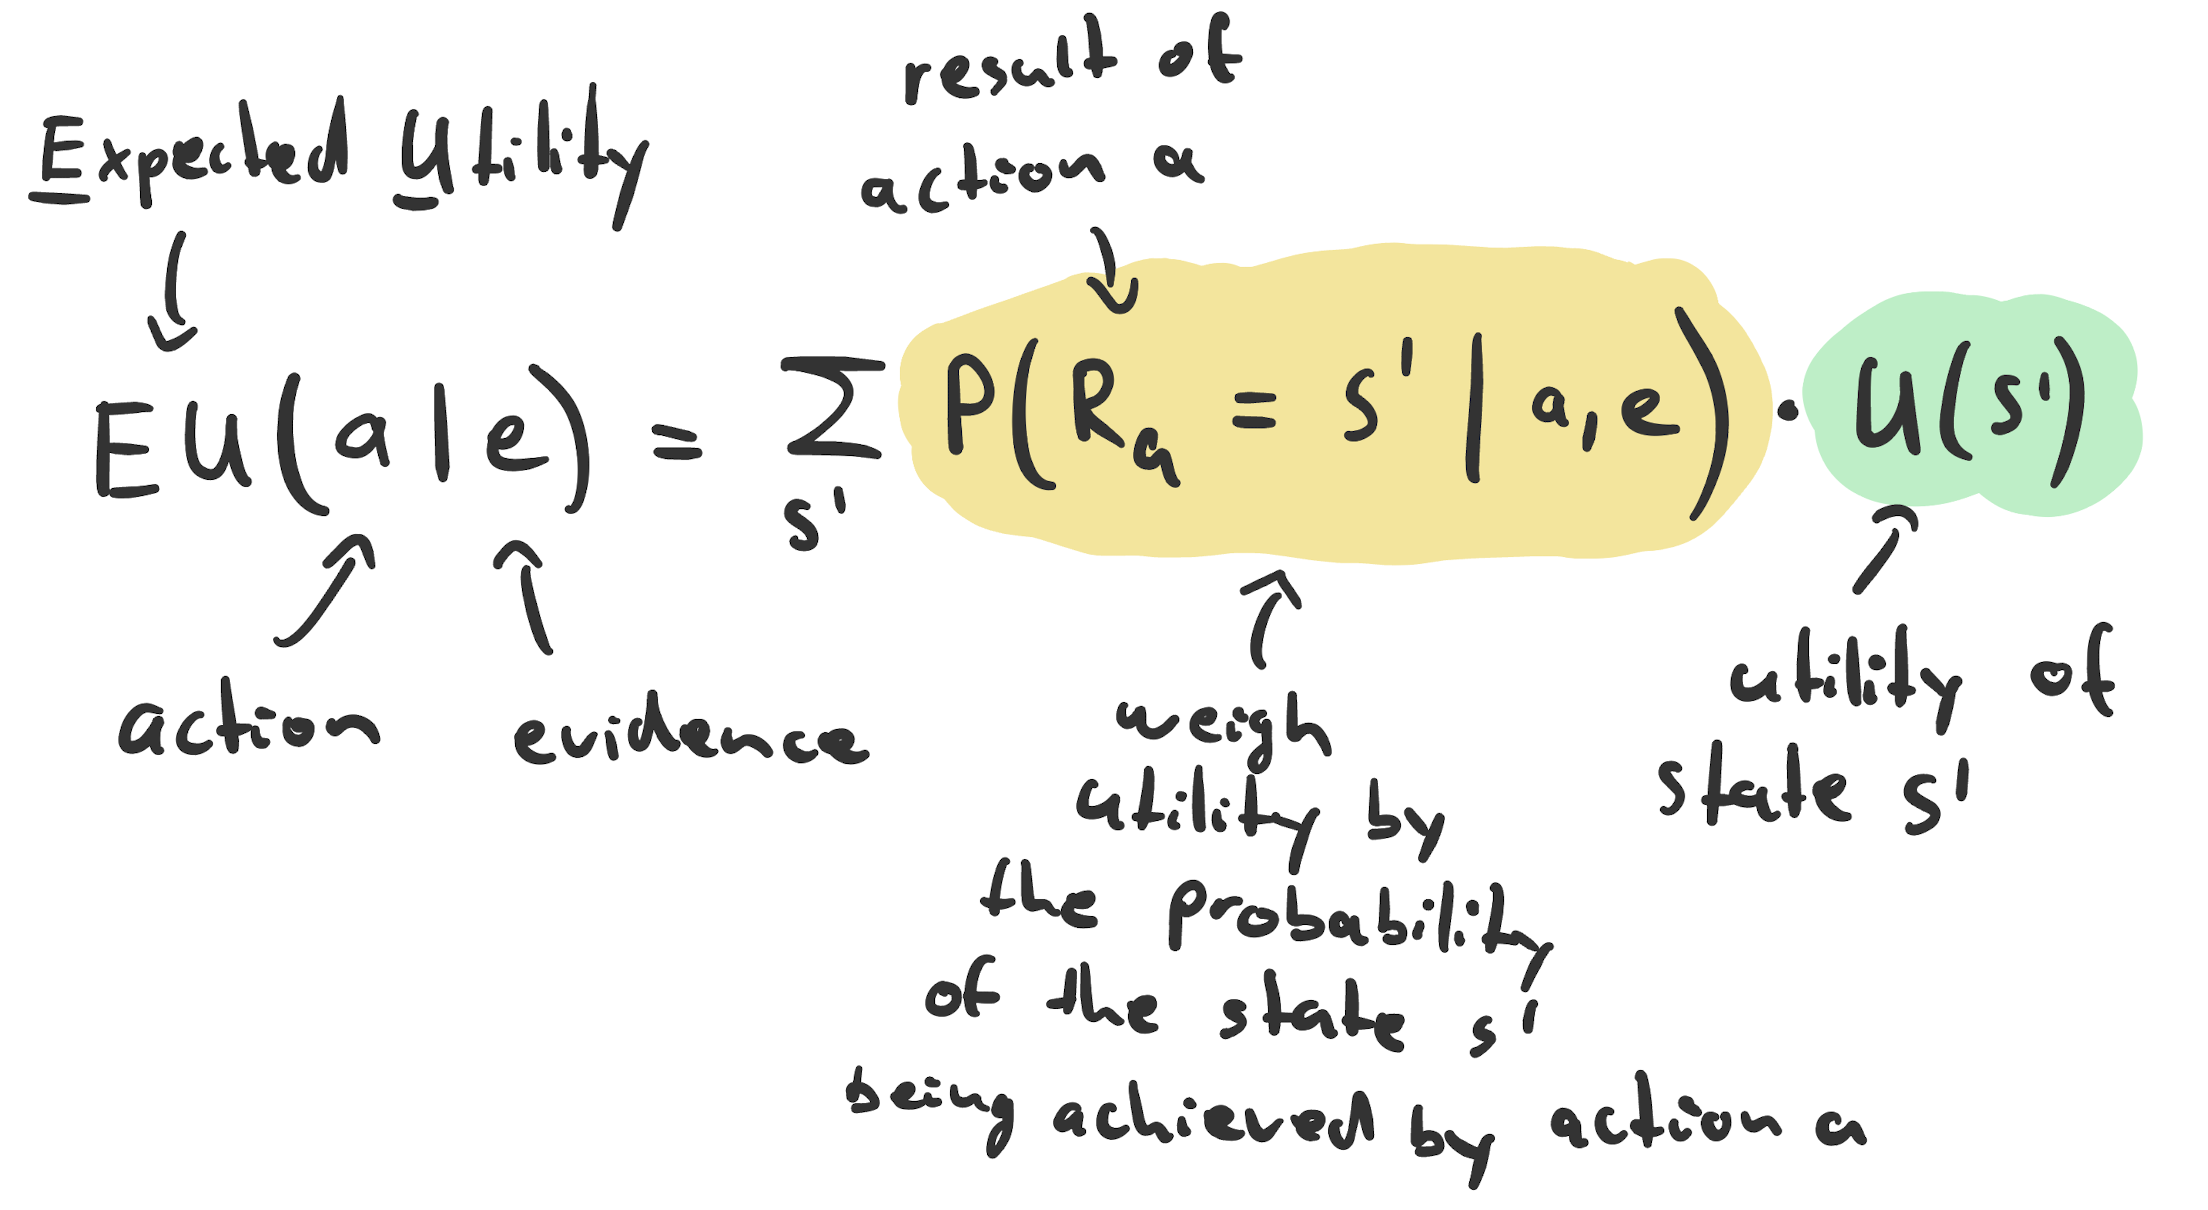 result of
action a
Expected Utility
EU(a|e) = Σ P(Rₐ = s' | a,e) · U(s')
s'
action
evidence
weigh
utility by
the probability
of the state s'
being achieved by action a
utility of
state s'